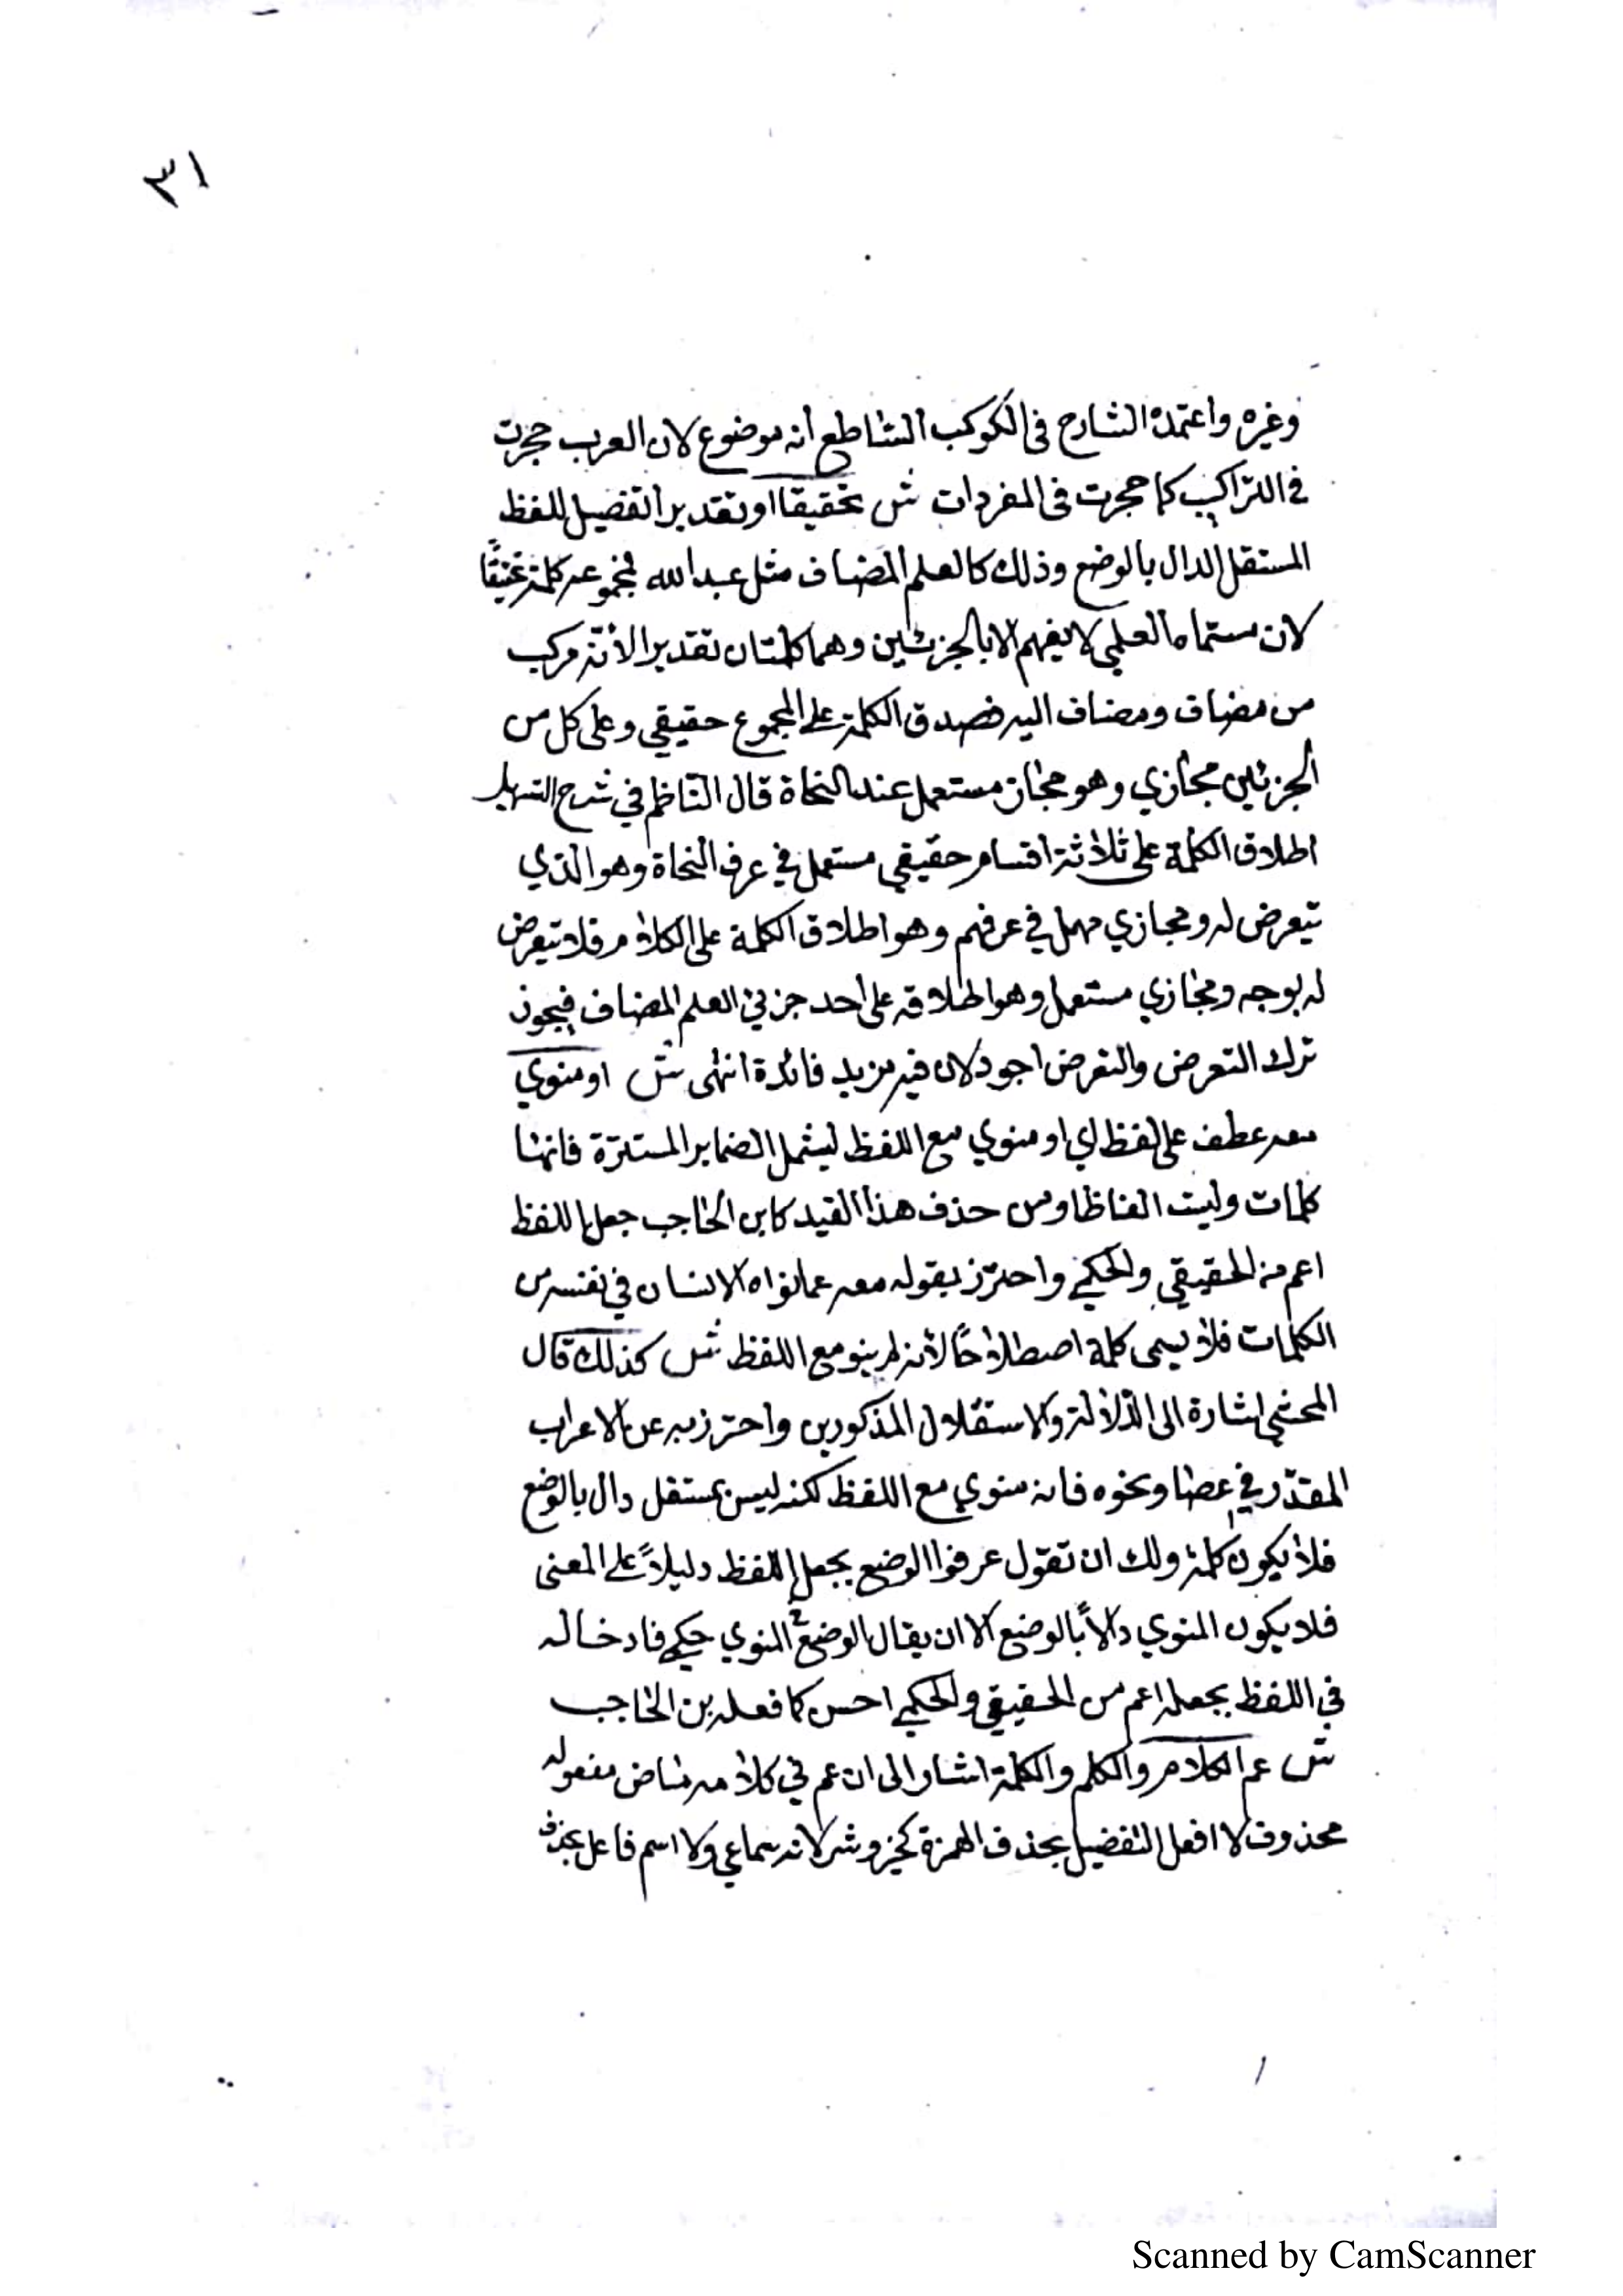 ٣١
وغيره واعتمده الشارح في الكوكب الساطع أنه موضوع لان العرب حجرت
في التراكيب كما حجرت في المفردات ش تحقيقا او تقديرا تفصيل للفظ
المستقل الدال بالوضع وذلك كالعلم المضاف مثل عبد الله فمجموعه كلمة تحقيقًا
لان مسماه العلمي لا يفهم الا بالجزئين وهما كلمتان تقديرا لأنّه مركب
من مضاف ومضاف اليه فصدق الكلمة على المجموع حقيقي وعلى كل من
الجزئين مجازي وهو مجاز مستعمل عند النحاة قال الناظم في شرح التسهيل
اطلاق الكلمة على ثلاثة اقسام حقيقي مستعمل في عرف النحاة وهو الذي
يتعرض له ومجازي مهمل في عرفهم وهو اطلاق الكلمة على الكلام فلا يتعرض
له بوجه ومجازي مستعمل وهو اطلاقه على احد جزئي العلم المضاف فيجوز
ترك التعرض والتعرض اجود لان فيه مزيد فائدة انتهى ش او منوي
معه عطف على لفظ اي او منوي مع اللفظ ليشمل الضماير المستترة فانها
كلمات وليست الفاظا ومن حذف هذا القيد كابن الحاجب جعل اللفظ
اعم من الحقيقي والحكمي واحترز بقوله معه عما نواه الانسان في نفسه من
الكلمات فلا يسمى كلمة اصطلاحًا لأنه لم ينو مع اللفظ ش كذلك قال
المحشي اشارة الى الدّلالة والاستقلال المذكورين واحترز به عن الاعراب
المقدّر في عصا ونحوه فانه منوي مع اللفظ لكنه ليس بمستقل دال بالوضع
فلا يكون كلمة ولك ان تقول عرفوا الوضع بجعل اللفظ دليلاً على المعنى
فلا يكون المنوي دالاً بالوضع الا ان يقال الوضع في المنوي حكمي فادخاله
في اللفظ بجعله اعم من الحقيقي والحكمي احسن كما فعله بن الحاجب
ش عم الكلام والكلم والكلمة اشار الى ان عم في كلامه ماض مفعوله
محذوف لا افعل التفضيل بحذف الهمزة كخير وشر لانه سماعي ولا اسم فاعل بحذف
Scanned by CamScanner